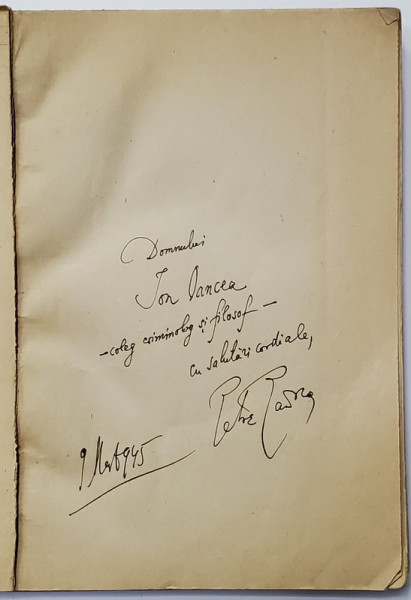 Domnului
Ion Oancea
- coleg criminolog și filosof -
cu salutări cordiale,
Petre
9 Mart 945